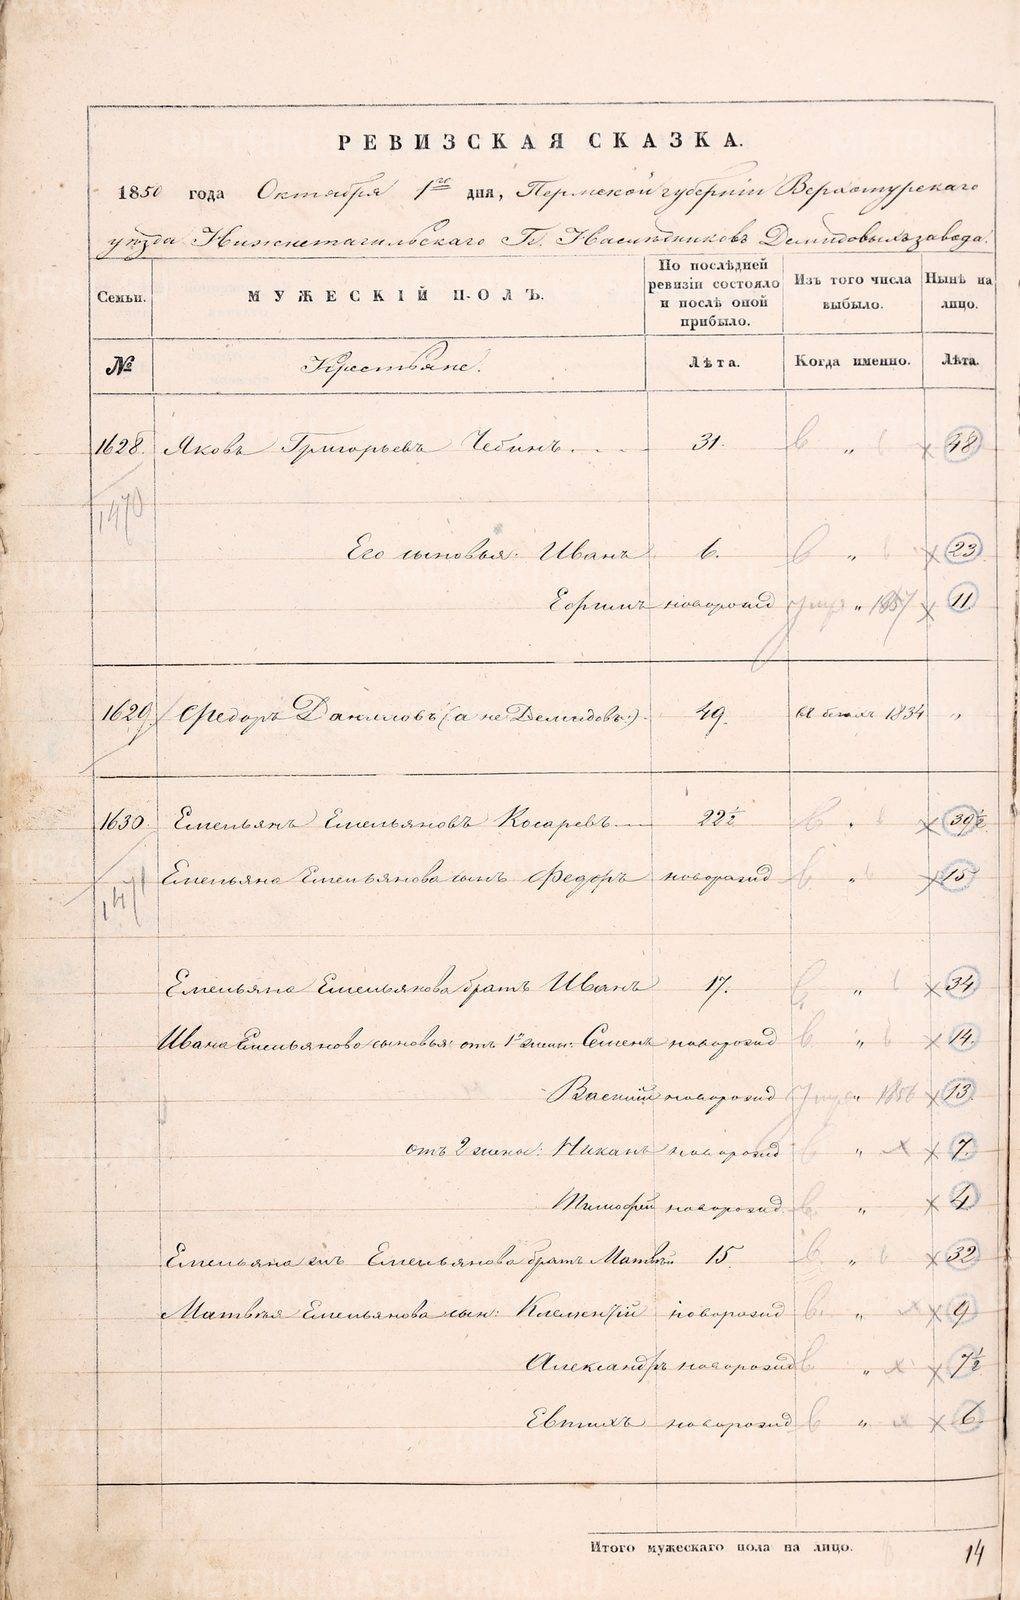 РЕВИЗСКАЯ СКАЗКА.
1850 года Октября 1го дня, Пермской губернии Верхотурскаго
уѣзда Нижнетагильскаго Гг. Наслѣдниковъ Демидовыхъ завода.
Семьи. МУЖЕСКІЙ ПОЛЪ. По послѣдней ревизіи состояло и послѣ оной прибыло. Изъ того числа выбыло. Нынѣ на лицо.
№ Крестьяне. Лѣта. Когда именно. Лѣта.
1628. Яковъ Григорьевъ Чебинъ 31. „ 48
1470
Его сыновья: Иванъ 6. „ 23
Ефимъ новорожд „ 1857 11
1629. Федоръ Даниловъ (а не Демидовъ) 49. 1834 „
1630. Емельянъ Емельяновъ Косаревъ 22½ „ 39½
Емельяна Емельянова сынъ Федоръ новорожд „ 15
1471
Емельяна Емельянова братъ Иванъ 17. „ 34
Ивана Емельянова сыновья: отъ 1й жены: Семенъ новорожд „ 14.
Василій новорожд „ 1856 13
отъ 2 жены: новорожд „ 7.
Тимофей новорожд „ 4
Емельяна Емельянова братъ Матвѣй 15. „ 32
Матвѣя Емельянова сын: Климентій новорожд „ 9
Александръ новорожд „ 7½
Евтихъ новорожд „ 6.
Итого мужескаго пола на лицо. 14